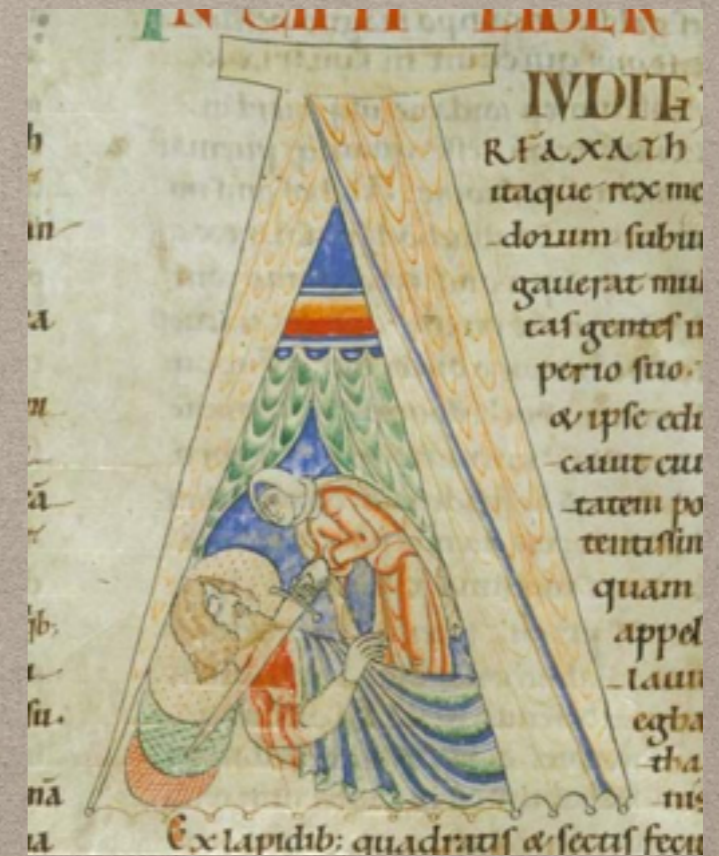 INCIPIT LIBER
IVDITH
RFAXATh
itaque rex me
dorum subiu
gauerat mul
tas gentes i
perio suo.
& ipse edi
cauit ciui
tatem po
tentissim
quam
appel
lauit
egba
tha
nis
Ex lapidib; quadratis & sectis feci